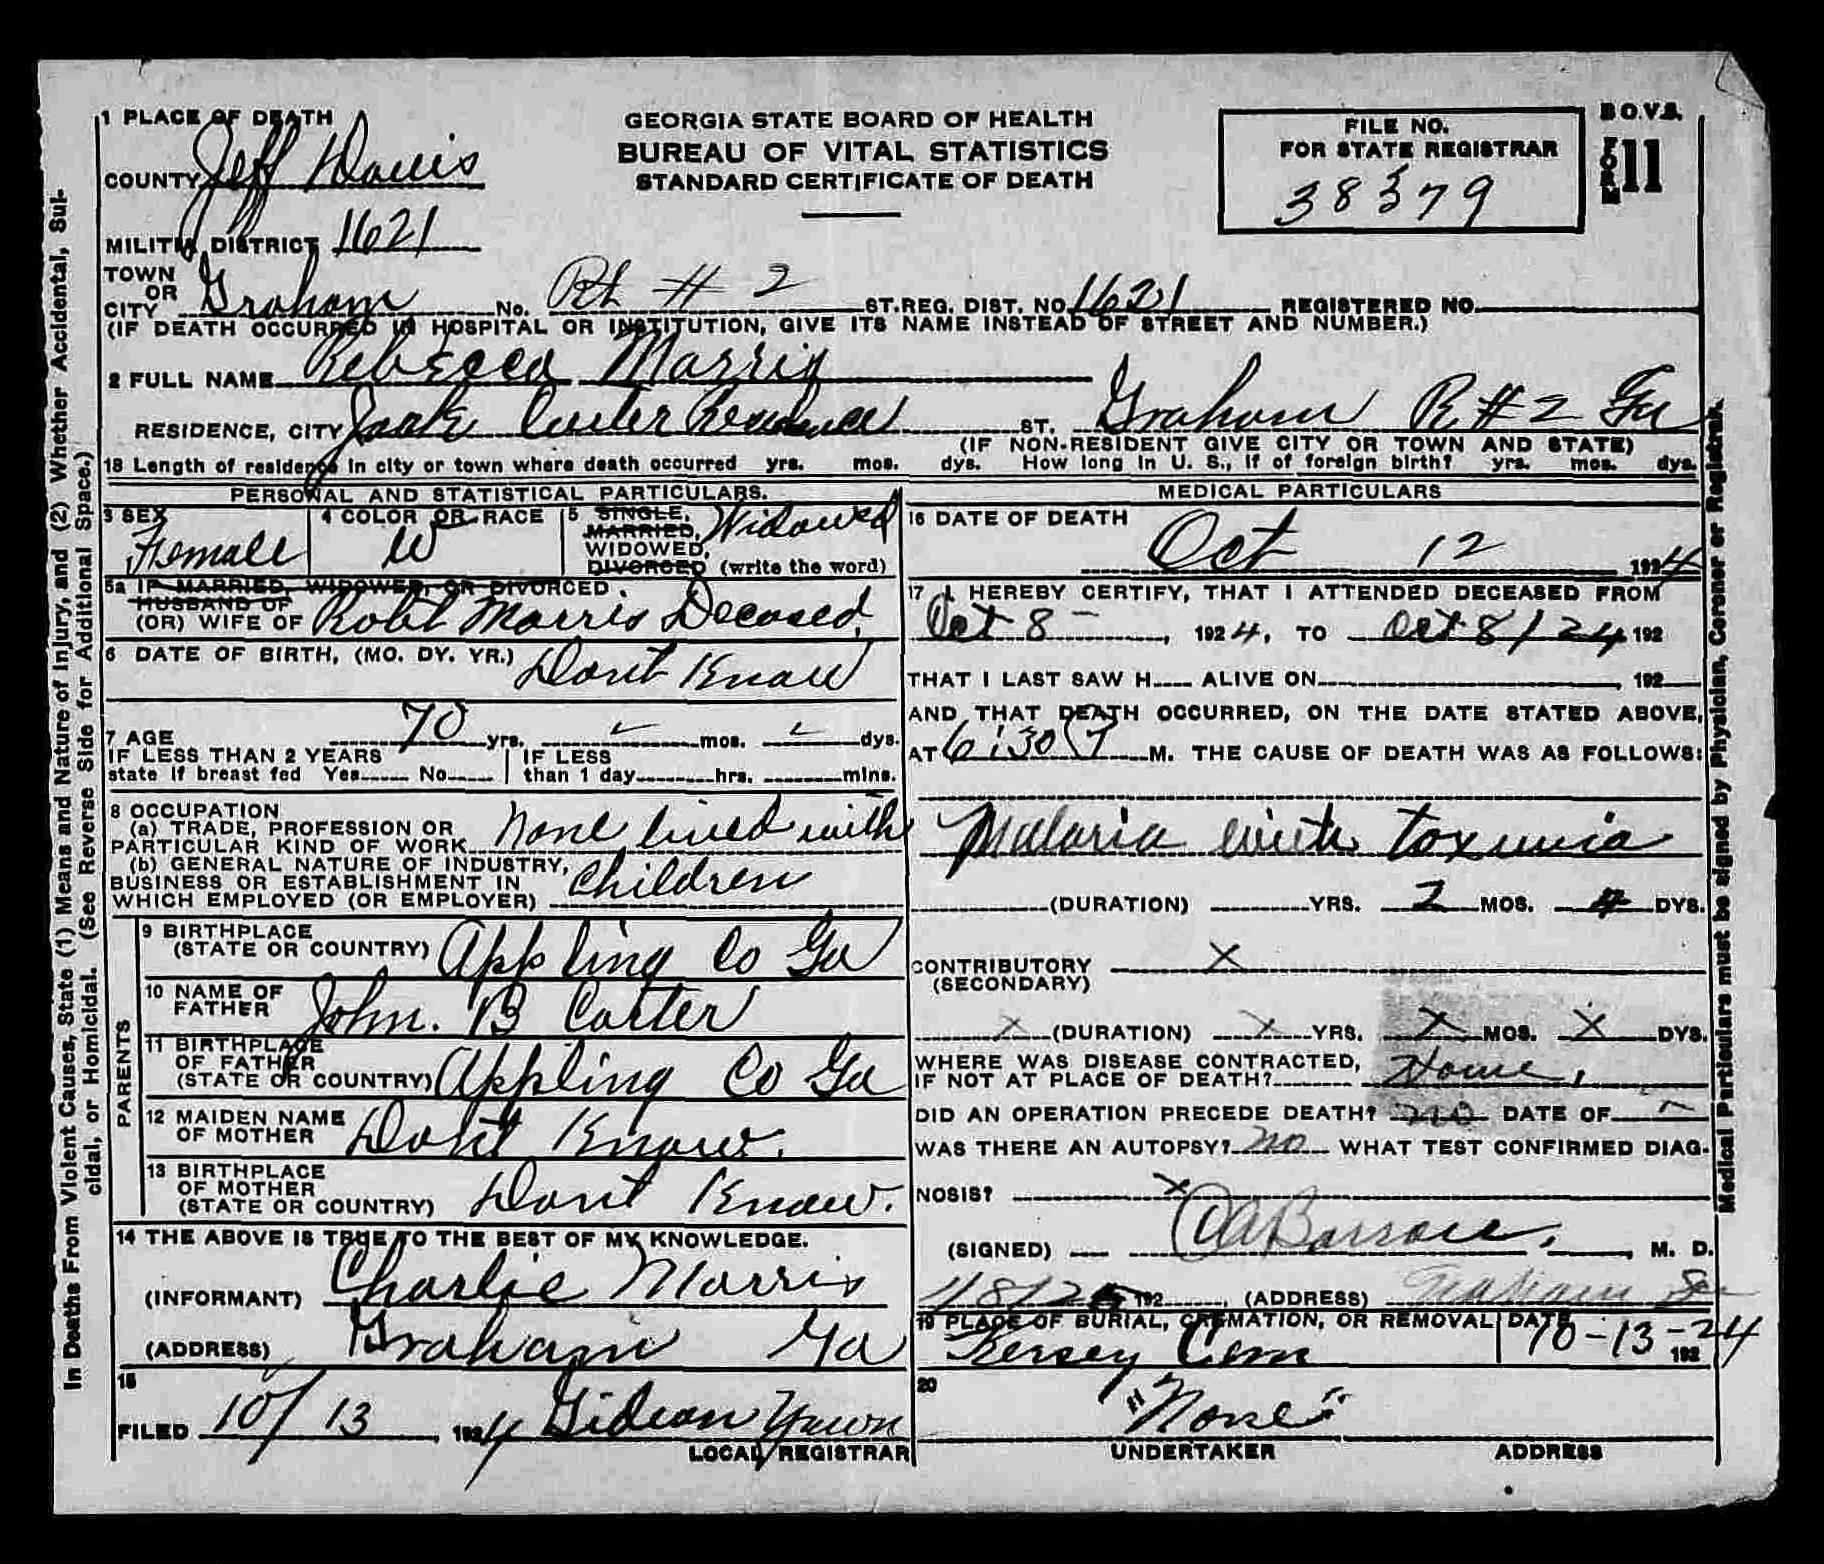 1 PLACE OF DEATH
COUNTY Jeff Davis
MILITIA DISTRICT 1621
TOWN OR CITY Graham No. Rt # 2 ST. REG. DIST. NO. 1621 REGISTERED NO.
(IF DEATH OCCURRED IN HOSPITAL OR INSTITUTION, GIVE ITS NAME INSTEAD OF STREET AND NUMBER.)
GEORGIA STATE BOARD OF HEALTH
BUREAU OF VITAL STATISTICS
STANDARD CERTIFICATE OF DEATH
FILE NO.
FOR STATE REGISTRAR
38379
B.O.V.S.
FORM 11
2 FULL NAME Rebecca Morris
RESIDENCE, CITY Jack Carter Residence ST. Graham R # 2 Ga
(IF NON-RESIDENT GIVE CITY OR TOWN AND STATE)
18 Length of residence in city or town where death occurred yrs. mos. dys. How long in U. S., if of foreign birth? yrs. mos. dys.
PERSONAL AND STATISTICAL PARTICULARS.
3 SEX Female
4 COLOR OR RACE W
5 SINGLE, MARRIED, WIDOWED, DIVORCED (write the word) Widowed
5a IF MARRIED, WIDOWED, OR DIVORCED.
HUSBAND OF
(OR) WIFE OF Robt Morris Deceased,
6 DATE OF BIRTH, (MO. DY. YR.) Dont Know
7 AGE 70 yrs. mos. dys.
IF LESS THAN 2 YEARS
state if breast fed Yes No
IF LESS
than 1 day hrs. mins.
8 OCCUPATION
(a) TRADE, PROFESSION OR
PARTICULAR KIND OF WORK None lived with
(b) GENERAL NATURE OF INDUSTRY,
BUSINESS OR ESTABLISHMENT IN
WHICH EMPLOYED (OR EMPLOYER) Children
PARENTS
9 BIRTHPLACE
(STATE OR COUNTRY) Appling Co Ga
10 NAME OF
FATHER John. B Carter
11 BIRTHPLACE
OF FATHER
(STATE OR COUNTRY) Appling Co Ga
12 MAIDEN NAME
OF MOTHER Dont Know.
13 BIRTHPLACE
OF MOTHER
(STATE OR COUNTRY) Dont Know.
14 THE ABOVE IS TRUE TO THE BEST OF MY KNOWLEDGE.
(INFORMANT) Charlie Morris
(ADDRESS) Graham Ga
15
FILED 10/13 1924 Gideon Yawn
LOCAL REGISTRAR
MEDICAL PARTICULARS
16 DATE OF DEATH
Oct 12 1924
17 I HEREBY CERTIFY, THAT I ATTENDED DECEASED FROM
Oct 8 - , 1924, TO Oct 8/24 192
THAT I LAST SAW H ALIVE ON , 192
AND THAT DEATH OCCURRED, ON THE DATE STATED ABOVE,
AT 6:30 P M. THE CAUSE OF DEATH WAS AS FOLLOWS:
Malaria with toxemia
(DURATION) YRS. 2 MOS. 4 DYS.
CONTRIBUTORY x
(SECONDARY)
x (DURATION) x YRS. x MOS. x DYS.
WHERE WAS DISEASE CONTRACTED,
IF NOT AT PLACE OF DEATH? Home,
DID AN OPERATION PRECEDE DEATH? no DATE OF
WAS THERE AN AUTOPSY? no WHAT TEST CONFIRMED DIAG-
NOSIS? x
(SIGNED) , M. D.
192 , (ADDRESS) Graham Ga
19 PLACE OF BURIAL, CREMATION, OR REMOVAL DATE
Kersey Cem 10-13-24 192
20
"None"
UNDERTAKER ADDRESS
In Deaths From Violent Causes, State (1) Means and Nature of Injury, and (2) Whether Accidental, Sui-
cidal, or Homicidal. (See Reverse Side for Additional Space.)
Medical Particulars must be signed by Physician, Coroner or Registrar.